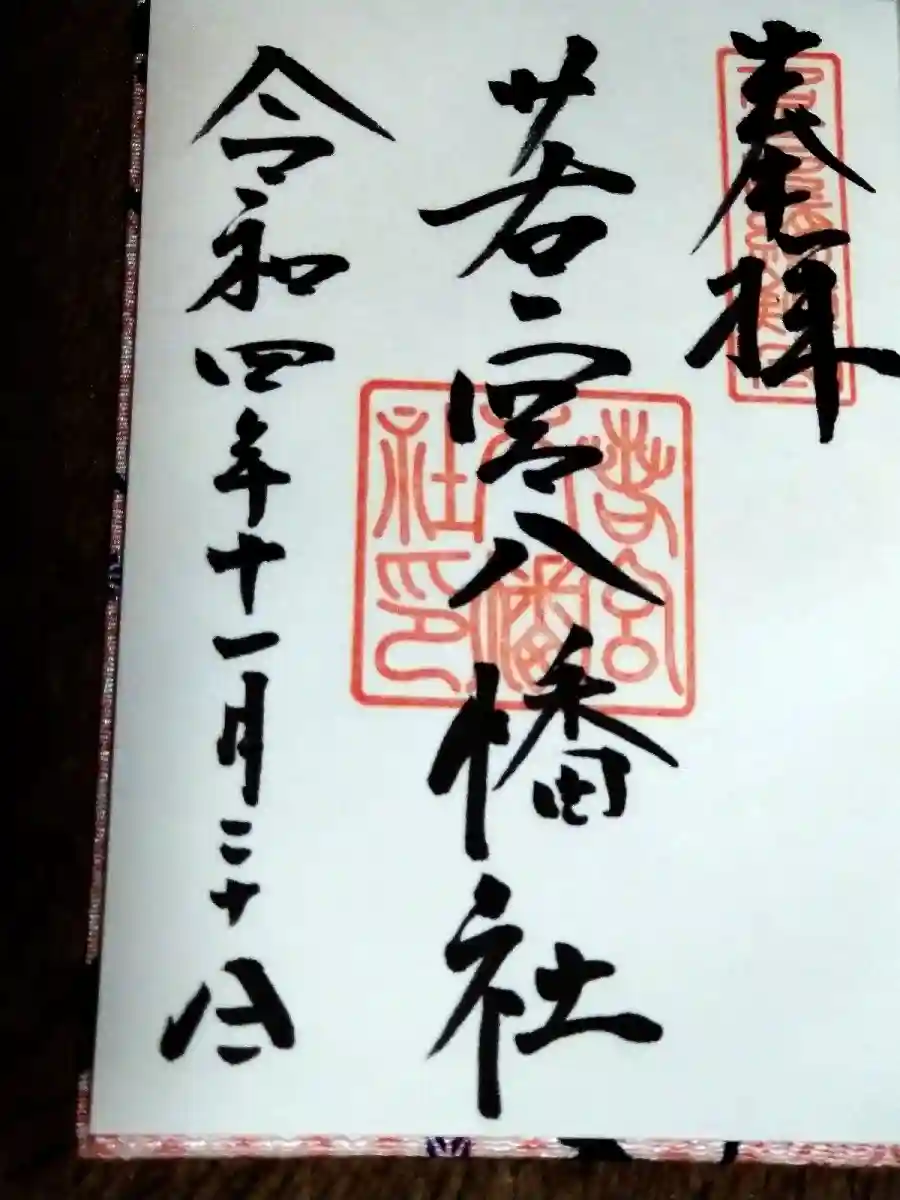 奉拝
若宮八幡社
若宮八幡社印
令和四年十一月二十日